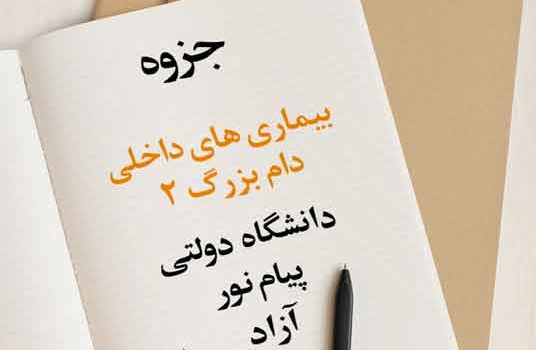 جزوه
بیماری های داخلی
دام بزرگ ۲
دانشگاه دولتی
پیام نور
آزاد